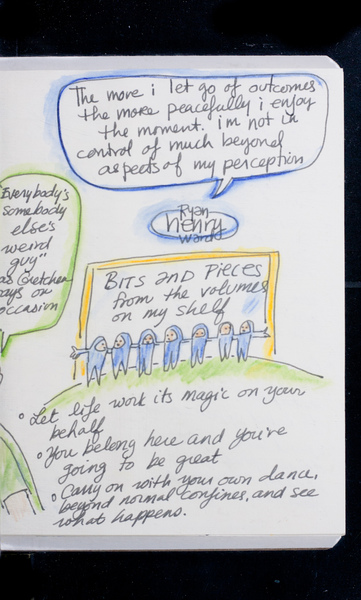 The more i let go of outcomes
the more peacefully i enjoy
the moment. im not in
control of much beyond
aspects of my perception
Ryan
henry
Ward
Everybody's
somebody
else's
weird
guy"
as Gretchen
says on
occasion
BITS and PIECES
from the volumes
on my shelf
• Let life work its magic on your
behalf
• You belong here and you're
going to be great
• Carry on with your own dance,
beyond normal confines, and see
what happens.